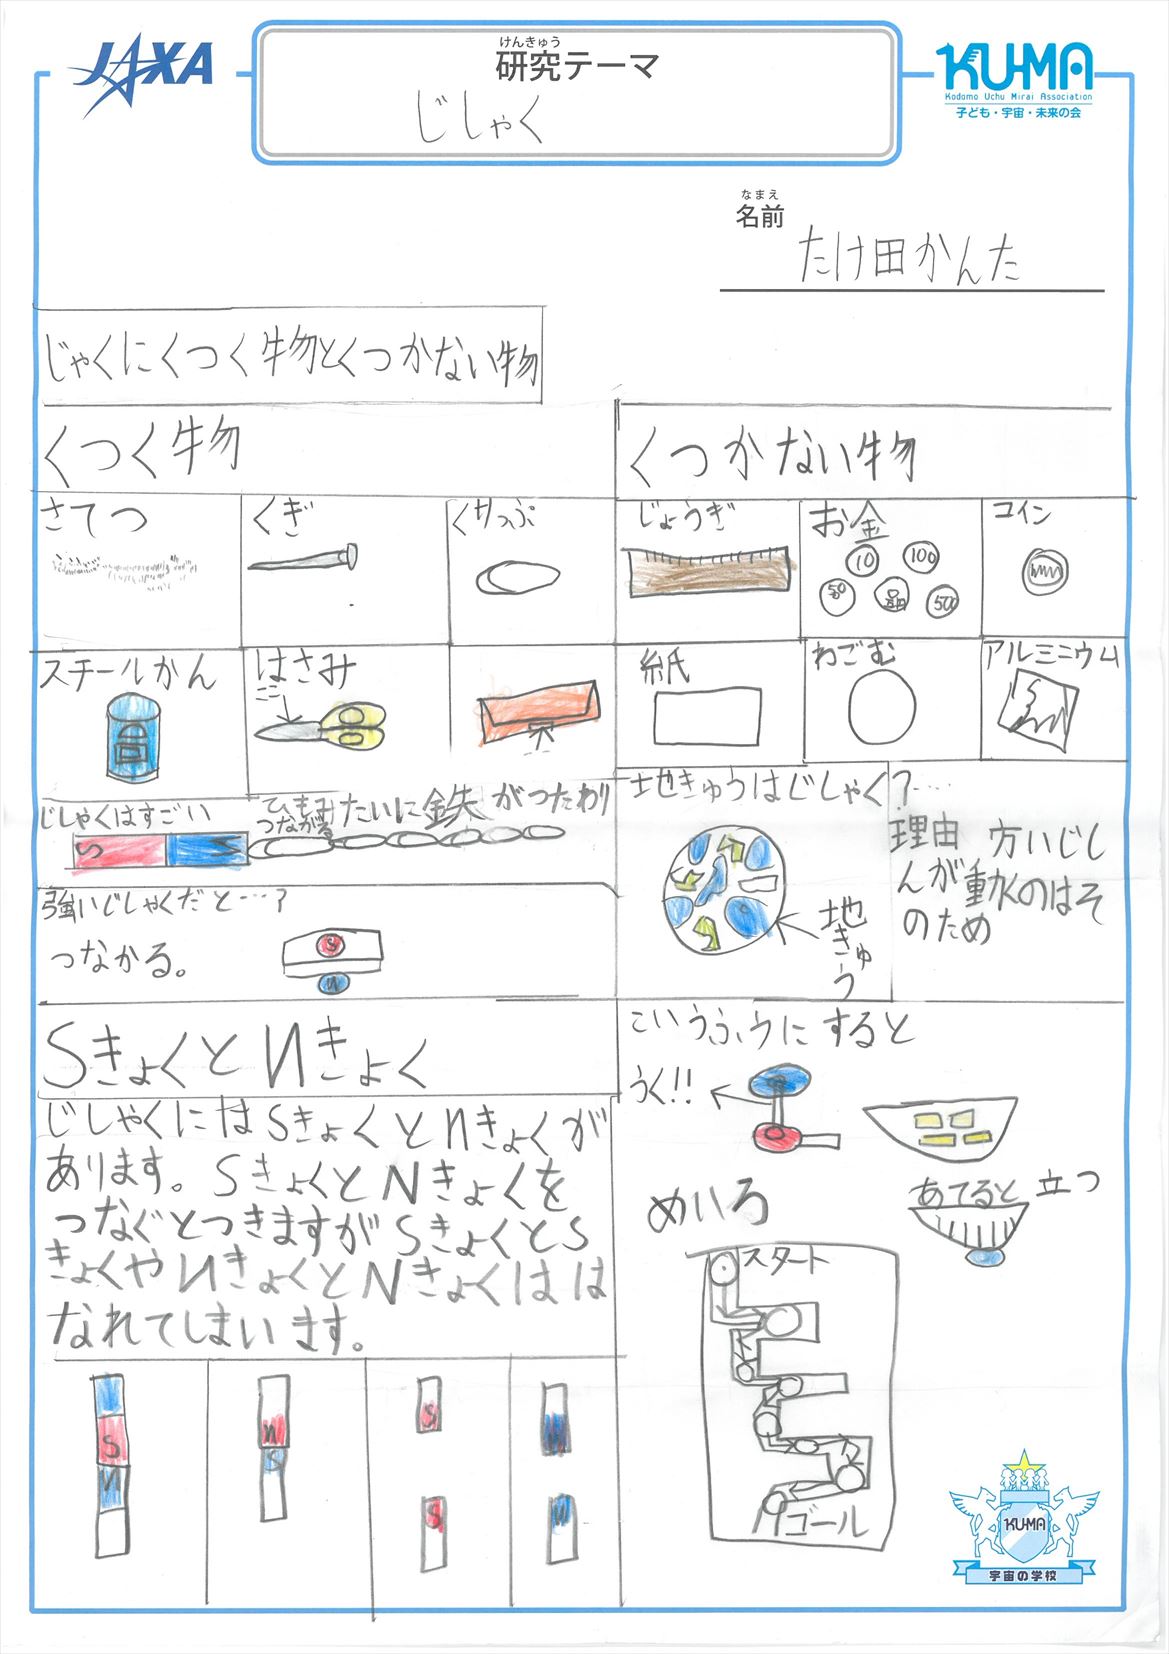 JAXA
けんきゅう
研究テーマ
じしゃく
KU-MA
Kodomo Uchu Mirai Association
子ども・宇宙・未来の会
なまえ
名前
たけ田かんた
じゃくにくつく物とくつかない物
くつく物
くつかない物
さてつ
くぎ
くりっぷ
じょうぎ
お金
10
100
50
500
コイン
スチールかん
はさみ
ここ
紙
わごむ
アルミニウム
じしゃくはすごい
ひもみたいに鉄がつたわり
つながる
S
N
強いじしゃくだと…?
つなかる。
S
N
地きゅうはじしゃく?……
地きゅう
理由 方いじし
んが動水のはそ
のため
SきょくとNきょく
じしゃくにはSきょくとNきょくが
あります。SきょくとNきょくを
つなぐとつきますがSきょくとS
きょくやNきょくとNきょくはは
なれてしまいます。
S
N
N
S
S
S
N
N
こいうふうにすると
うく!!
あてると立つ
めいろ
スタート
ゴール
KU-MA
宇宙の学校